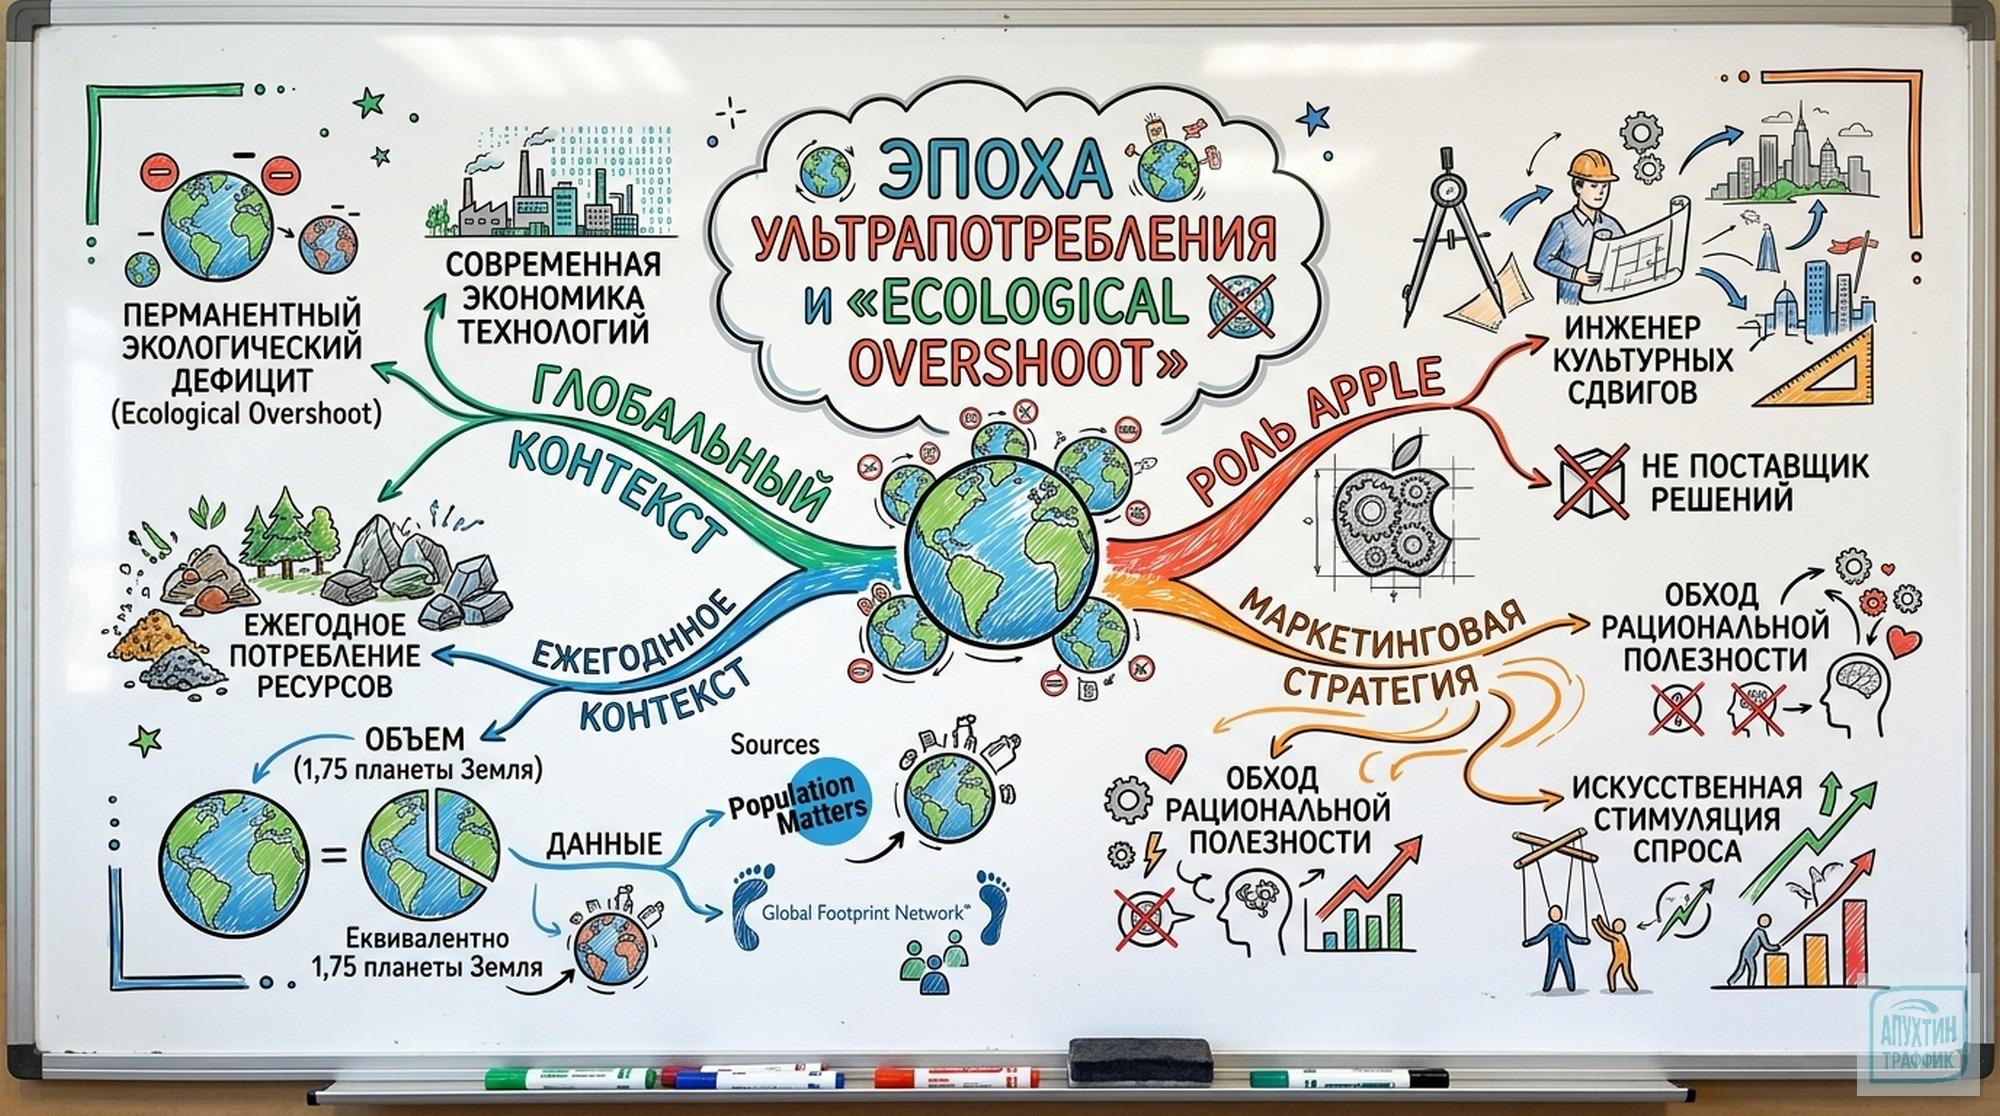 ЭПОХА
УЛЬТРАПОТРЕБЛЕНИЯ
И «ECOLOGICAL
OVERSHOOT»
ГЛОБАЛЬНЫЙ
КОНТЕКСТ
СОВРЕМЕННАЯ
ЭКОНОМИКА
ТЕХНОЛОГИЙ
ПЕРМАНЕНТНЫЙ
ЭКОЛОГИЧЕСКИЙ
ДЕФИЦИТ
(Ecological Overshoot)
ЕЖЕГОДННОЕ
КОНТЕКСТ
ЕЖЕГОДНОЕ
ПОТРЕБЛЕНИЕ
РЕСУРСОВ
ОБЪЕМ
(1,75 планеты Земля)
=
Еквивалентно
1,75 планеты Земля
ДАННЫЕ
Sources
Population
Matters
Global Footprint Network
РОЛЬ APPLE
ИНЖЕНЕР
КУЛЬТУРНЫХ
СДВИГОВ
НЕ ПОСТАВЩИК
РЕШЕНИЙ
МАРКЕТИНГОВАЯ
СТРАТЕГИЯ
ОБХОД
РАЦИОНАЛЬНОЙ
ПОЛЕЗНОСТИ
ОБХОД
РАЦИОНАЛЬНОЙ
ПОЛЕЗНОСТИ
ИСКУССТВЕННАЯ
СТИМУЛЯЦИЯ
СПРОСА
АПУХТИН
ТРАФФИК